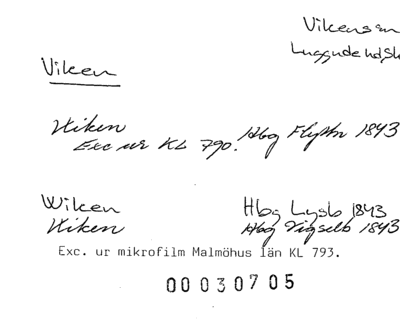 Vikens sn
Luggude hd, Sk
Viken
Wiken Hbg Flyttn 1843
Exc ur KL 790.
Wiken Hbg Lysb 1843
Wiken Hbg Vigselb 1843
Exc. ur mikrofilm Malmöhus län KL 793.
00030705